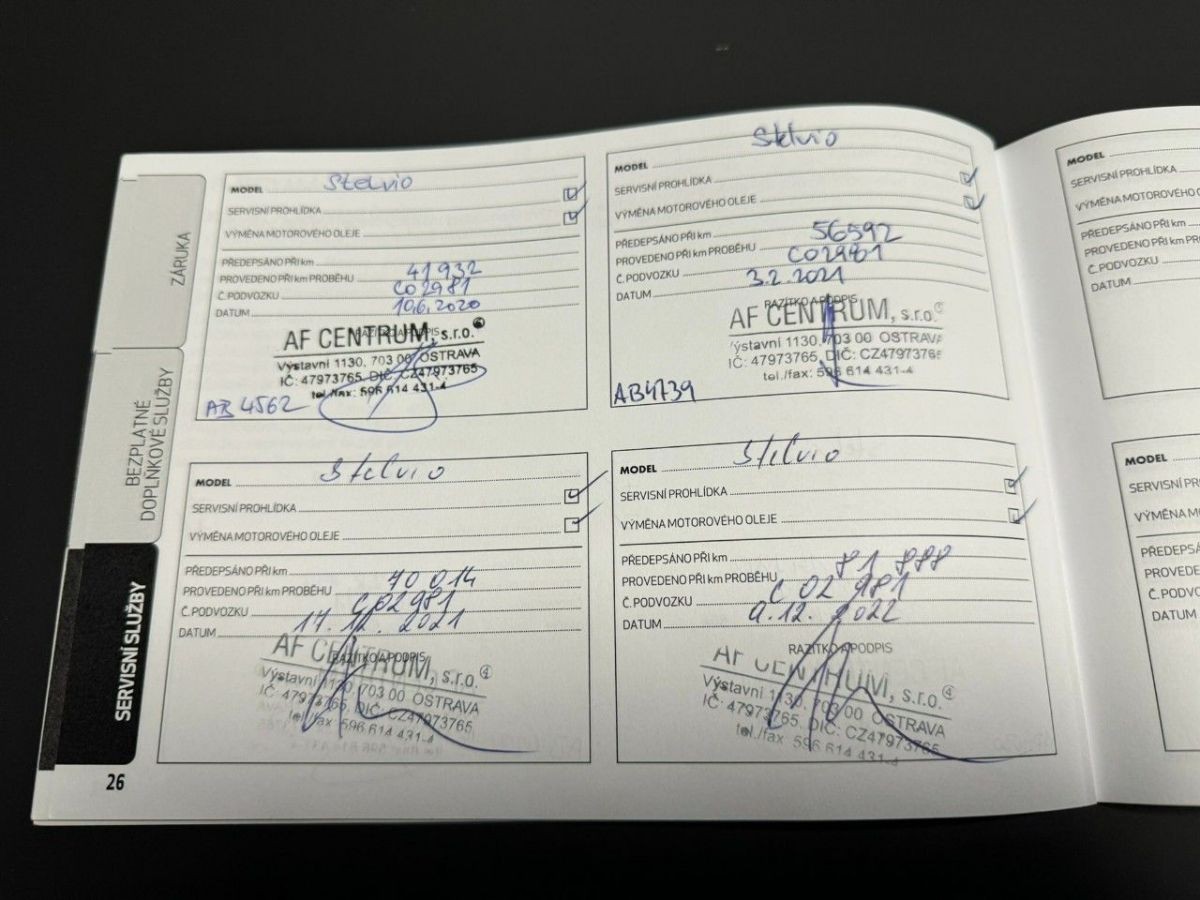 ZÁRUKA
BEZPLATNÉ
DOPLŇKOVÉ SLUŽBY
SERVISNÍ SLUŽBY
MODEL Stelvio
SERVISNÍ PROHLÍDKA
VÝMĚNA MOTOROVÉHO OLEJE
PŘEDEPSÁNO PŘI km
PROVEDENO PŘI km PROBĚHU 41932
Č. PODVOZKU C02981
DATUM 10.6.2020
RAZÍTKO A PODPIS
AF CENTRUM, s.r.o. ④
Výstavní 1130, 703 00 OSTRAVA
IČ: 47973765, DIČ: CZ47973765
tel./fax: 596 614 431-4
AB 4562
MODEL Stelvio
SERVISNÍ PROHLÍDKA
VÝMĚNA MOTOROVÉHO OLEJE
PŘEDEPSÁNO PŘI km
PROVEDENO PŘI km PROBĚHU 56592
Č. PODVOZKU C02981
DATUM 3.2.2021
RAZÍTKO A PODPIS
AF CENTRUM, s.r.o.
Výstavní 1130, 703 00 OSTRAVA
IČ: 47973765, DIČ: CZ4797376
tel./fax: 596 614 431-4
AB4739
MODEL Stelvio
SERVISNÍ PROHLÍDKA
VÝMĚNA MOTOROVÉHO OLEJE
PŘEDEPSÁNO PŘI km
PROVEDENO PŘI km PROBĚHU 70 014
Č. PODVOZKU C02981
DATUM 17.12.2021
RAZÍTKO A PODPIS
AF CENTRUM, s.r.o. ④
Výstavní 1130, 703 00 OSTRAVA
IČ: 47973765, DIČ: CZ47973765
tel./fax: 596 614 431-4
MODEL Stelvio
SERVISNÍ PROHLÍDKA
VÝMĚNA MOTOROVÉHO OLEJE
PŘEDEPSÁNO PŘI km
PROVEDENO PŘI km PROBĚHU 81 888
Č. PODVOZKU C 02 981
DATUM 9.12.2022
RAZÍTKO A PODPIS
AF CENTRUM, s.r.o. ④
Výstavní 1130, 703 00 OSTRAVA
IČ: 47973765, DIČ: CZ47973765
tel./fax: 596 614 431-4
26
MODEL
SERVISNÍ PROHLÍDKA
VÝMĚNA MOTOROVÉHO
PŘEDEPSÁNO PŘI km
PROVEDENO PŘI km PRO
Č. PODVOZKU
DATUM
MODEL
SERVISNÍ PR
VÝMĚNA M
PŘEDEPS
PROVEDE
Č. PODVO
DATUM